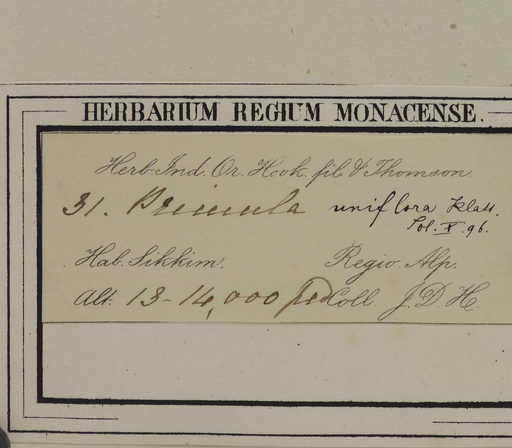 HERBARIUM REGIUM MONACENSE.
Herb. Ind. Or. Hook. fil. & Thomson.
31. Primula uniflora Klatt.
Sol. X. 96.
Hab. Sikkim. Regio. Alp.
Alt. 13-14,000 ped Coll. J. D. H.